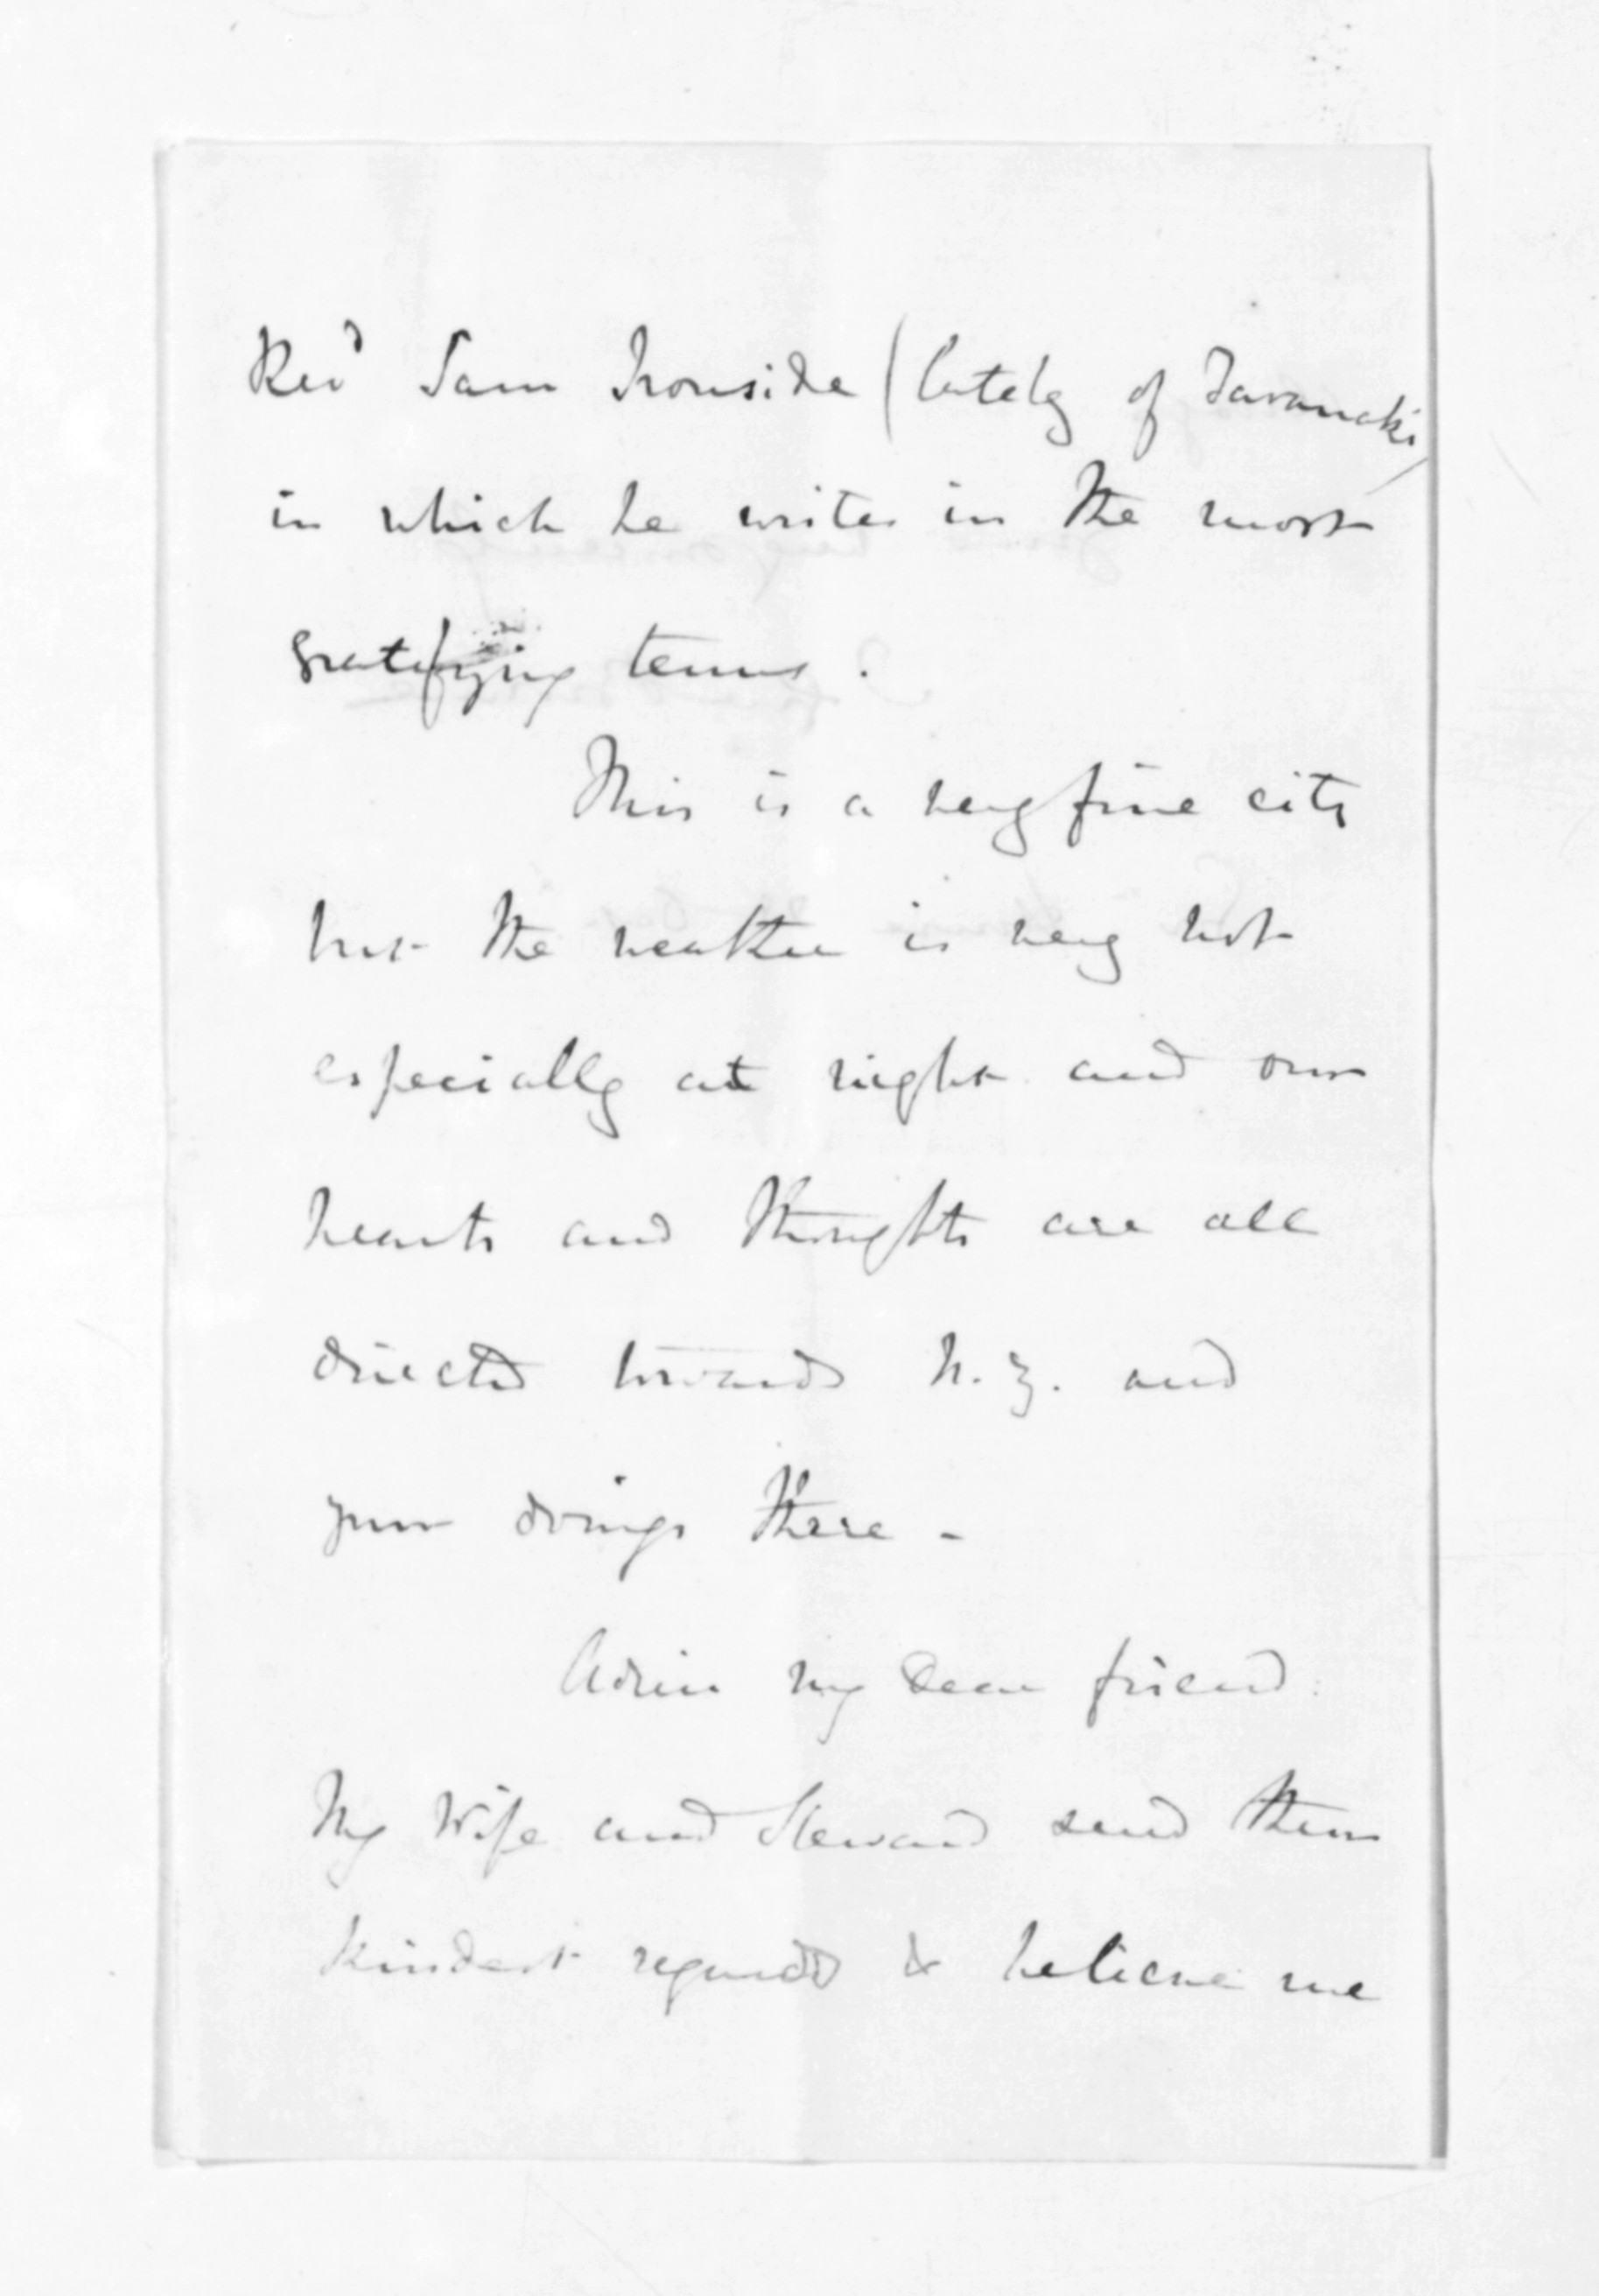 Revd Sam Ironside (lately of Taranaki)
in which he writes in the most
gratifying terms.
This is a very fine city
but the weather is very hot
especially at night and our
hearts and thoughts are all
directed towards N.Z. and
your doings there -
Adieu my dear friend.
My Wife and Steward send their
kindest regards & believe me